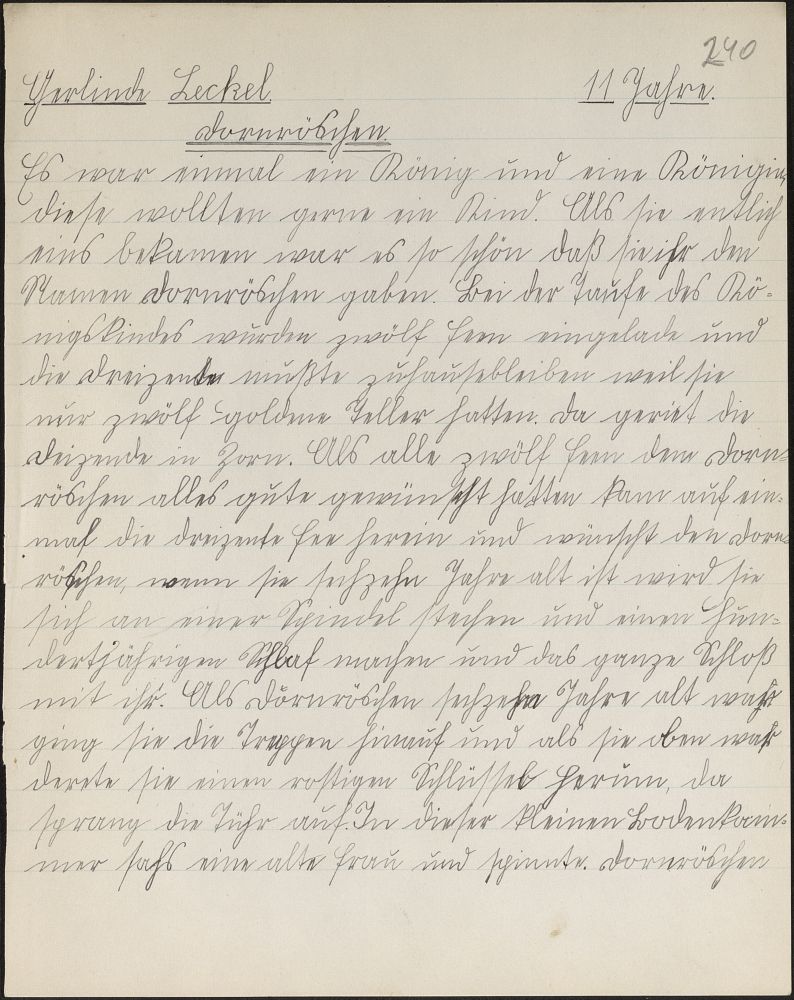 240
Gerlinde Leckel. 11 Jahre.
Dornröschen.
Es war einmal ein König und eine Königin,
diese wollten gerne ein Kind. Als sie entlich
eins bekamen war es so schön daß sie ihr den
Namen Dornröschen gaben. Bei der Taufe des Kö-
nigskindes wurden zwölf Feen eingelade und
die Dreizente mußte zuhausebleiben weil sie
nur zwölf goldene Teller hatten. Da geriet die
Deizende in Zorn. Als alle zwölf Feen dem Dorn-
röschen alles gute gewünscht hatten kam auf ein-
maf die dreizente Fee herein und wünscht den Dorn-
röschen, wenn sie sechzehn Jahre alt ist wird sie
sich an einer Spindel stechen und einen hun-
dertjährigen Schlaf machen und das ganze Schloß
mit ihr. Als Dornröschen sechzehn Jahre alt war
ging sie die Treppen hinauf und als sie oben war
derete sie einen rostigen Schlüssel herum, da
sprang die Tühr auf. In dieser kleinen Bodenkam-
mer sahs eine alte Frau und spinnte. Dornröschen